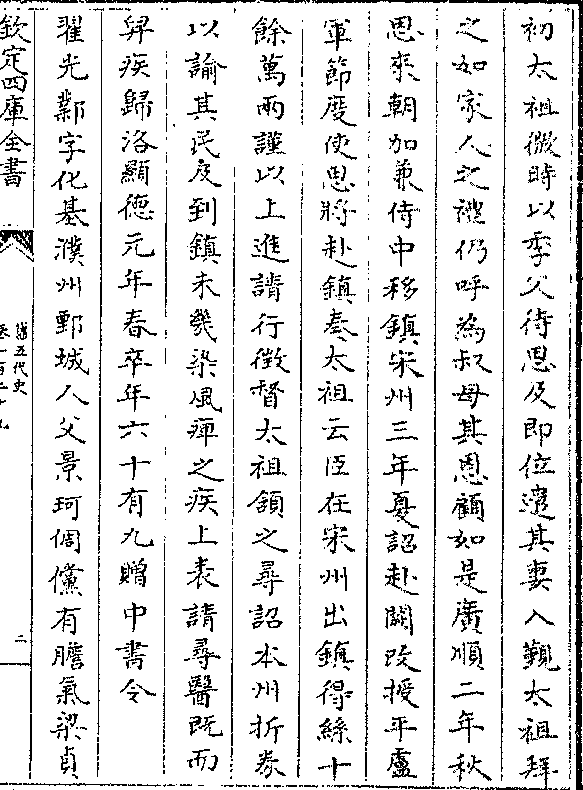 初太祖微時以季父待思及即位遣其妻入覲太祖拜
之如家人之禮仍呼為叔母其恩顧如是廣順二年秋
思來朝加兼侍中移鎮宋州三年夏詔赴闕改授平盧
軍節度使思將赴鎮奏太祖云臣在宋州出鎮得絲十
餘萬兩謹以上進請行徴督太祖頷之尋詔本州折券
以諭其民及到鎮未幾染風痺之疾上表請尋醫既而
舁疾歸洛顯德元年春卒年六十有九贈中書令
翟光鄴字化基濮州鄄城人父景珂倜儻有膽氣梁貞
欽定四庫全書
舊五代史
卷一百二十九
二